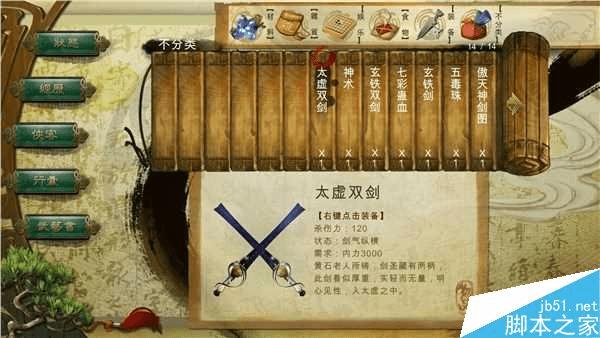 【材料】
【雜貨】
【娱乐】
【食物】
【装备】
【不分类】
14 / 14
不分类
狀態
經歷
俠客
行囊
武藝書
太虚双剑 X 1
神术 X 1
玄铁双剑 X 1
七彩蛊血 X 1
玄铁剑 X 1
五毒珠 X 1
傲天神剑图 X 1
太虚双剑
【右键点击装备】
杀伤力：120
状态：剑气纵横
需求：内力3000
黄石老人所铸，剑圣藏有两柄，
此剑看似厚重，实轻而无量，明
心见性，入太虚之中。
jb51.net
脚本之家